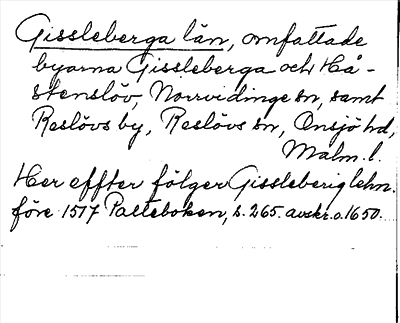 Gissleberga län, omfattade
byarna Gissleberga och Hå-
stenslöv, Norrvidinge sn, samt
Reslövs by, Reslövs sn, Onsjö hd,
Malm. l.
Her effter fölger Gissleberig lehn.
före 1517 Palteboken, s. 265. avskr. o. 1650.